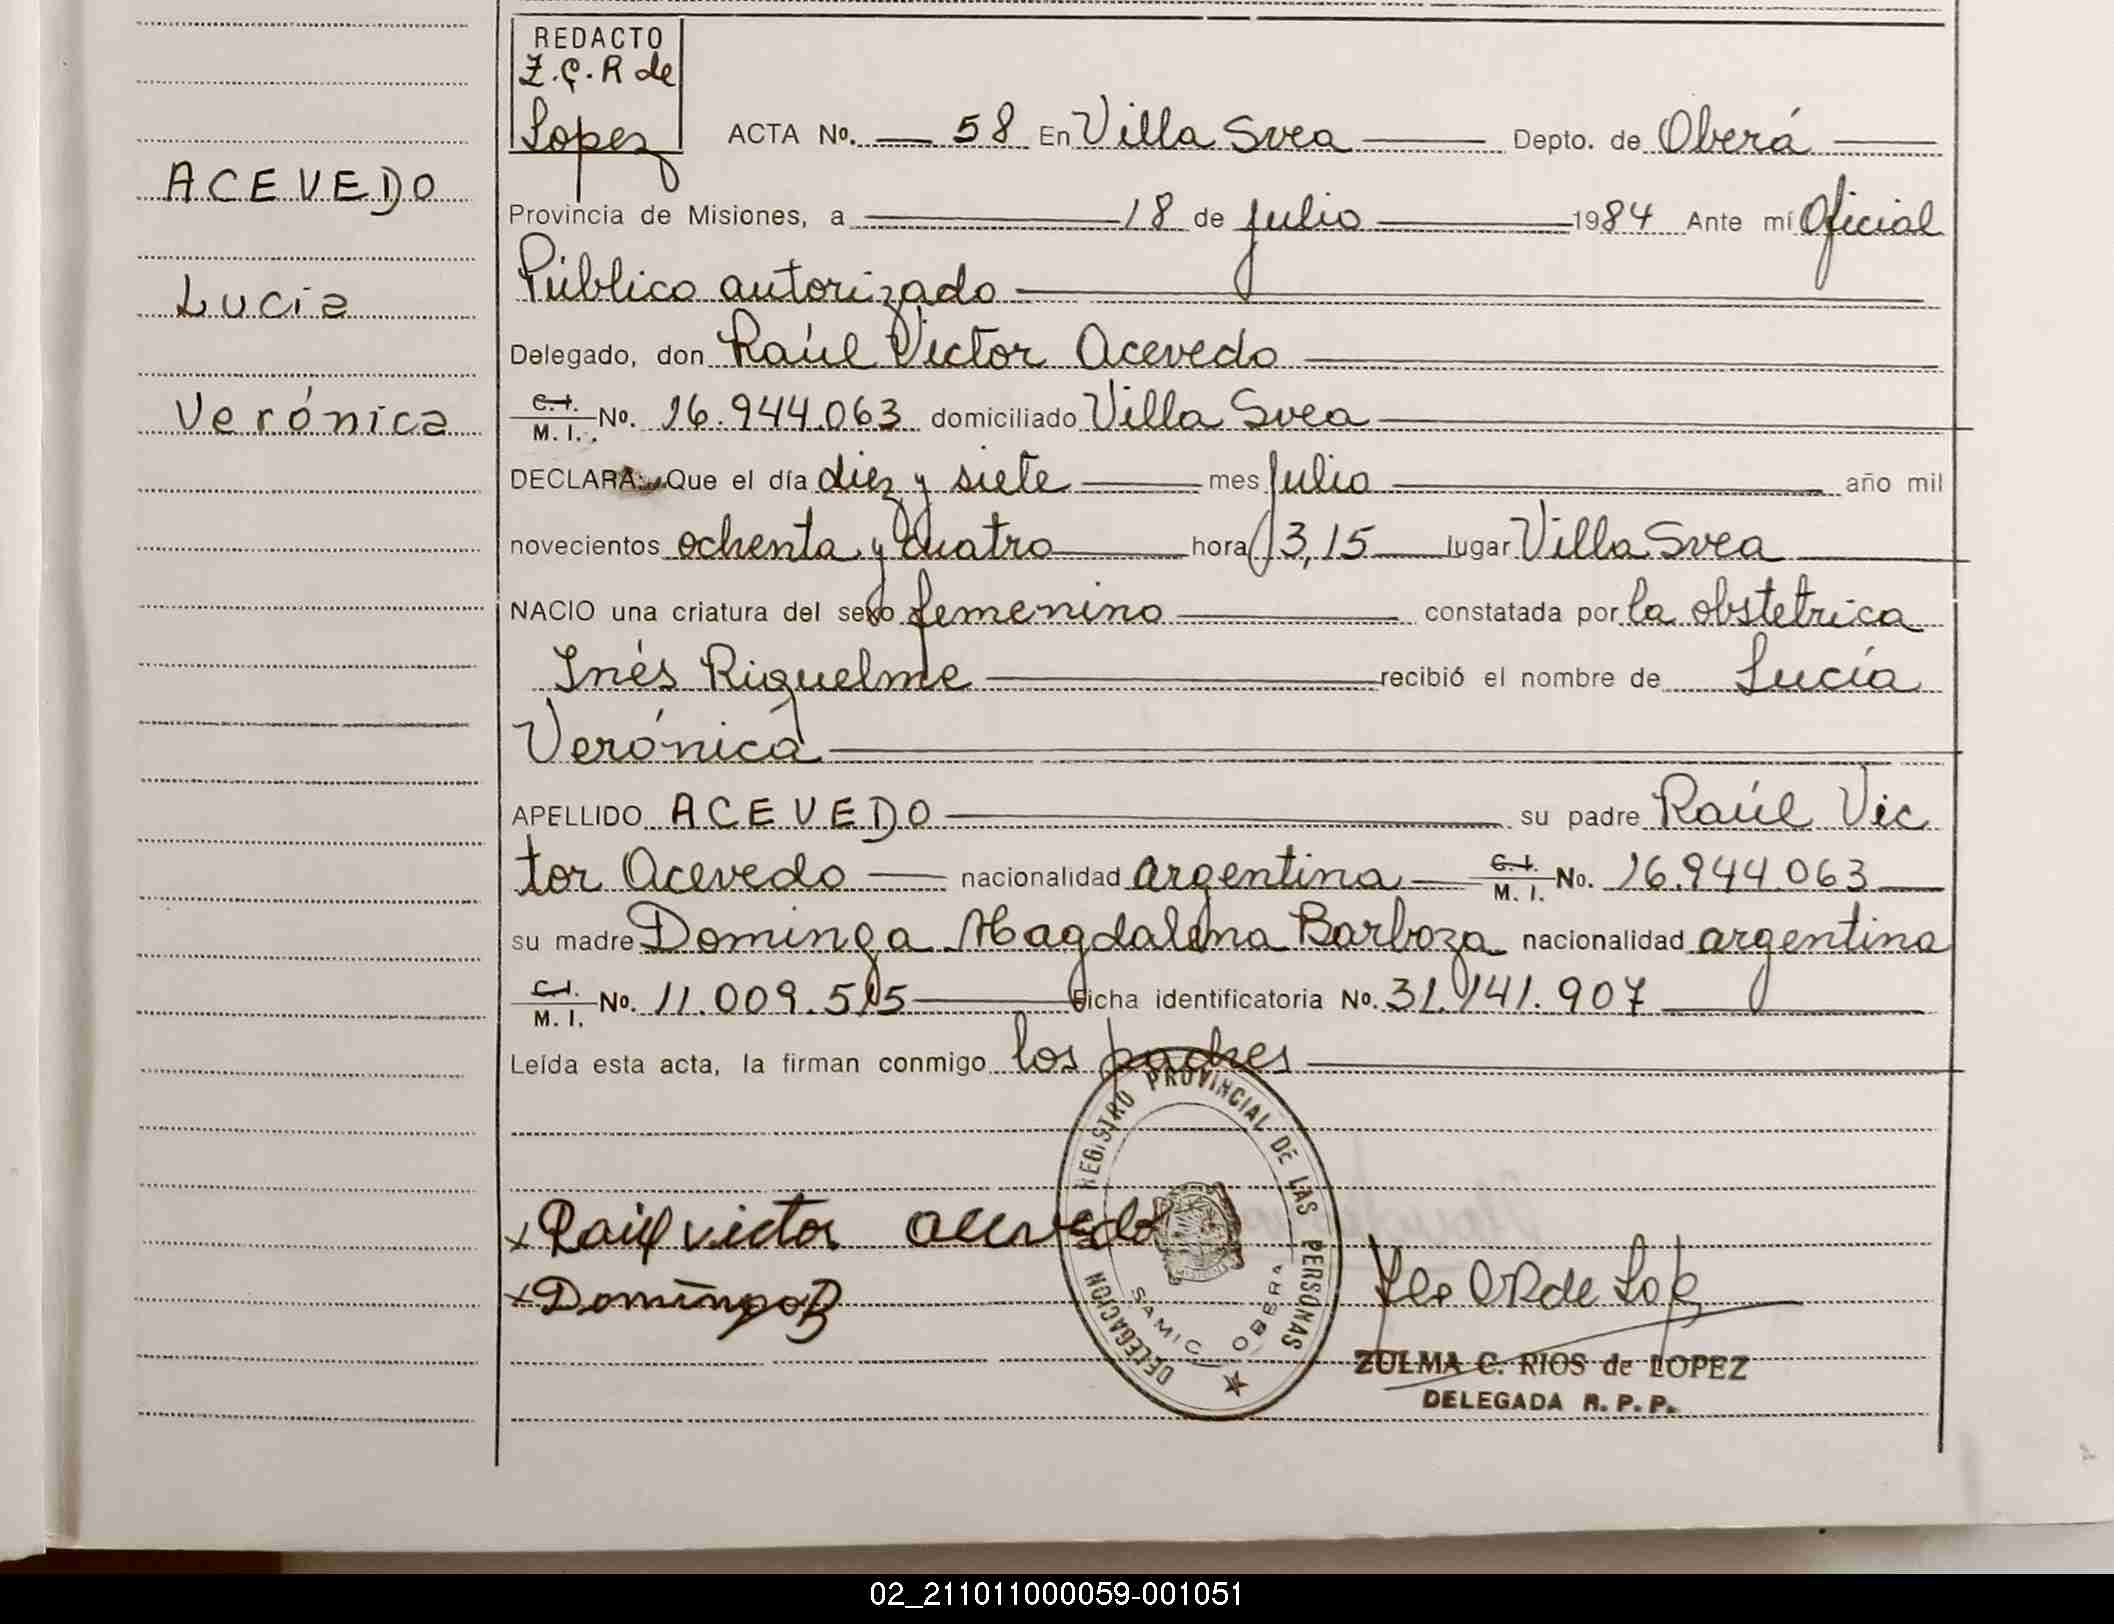 REDACTO
Z.C.R de
Lopez
ACTA No. 58 En Villa Svea Depto. de Oberá
ACEVEDO
Provincia de Misiones, a 18 de julio 1984 Ante mí Oficial
Público autorizado
Lucía
Delegado, don Raúl Victor Acevedo
Verónica
C.I. M.I. No. 16.944.063 domiciliado Villa Svea
DECLARA: Que el día diez y siete mes julio año mil
novecientos ochenta y cuatro hora 13,15 lugar Villa Svea
NACIO una criatura del sexo femenino constatada por la obstetrica
Inés Riquelme recibió el nombre de Lucía
Verónica
APELLIDO ACEVEDO su padre Raúl Vic
tor Acevedo nacionalidad argentina C.I. M.I. No. 16.944.063
su madre Dominga Magdalena Barboza nacionalidad argentina
C.I. M.I. No. 11.009.515 Ficha identificatoria No. 31.141.907
Leída esta acta, la firman conmigo los padres
REGISTRO PROVINCIAL DE LAS PERSONAS
DELEGACION
SAMIC OBERA
x Raúl victor acevedo
x Dominga B
ZULMA C. RIOS de LOPEZ
DELEGADA R. P. P.
02_211011000059-001051